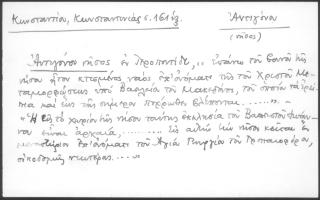 Κωνσταντίου, Κωνσταντινιάς σ. 161 ἑξ.
Ἀντιγόνη
(νῆσος)
Ἀντιγόνη νῆσος ἐν Προποντίδι, „ ἐπάνω τοῦ βουνοῦ τῆς
νήσου ἦτον κτισμένος ναὸς ἐπ' ὀνόματι τῆς τοῦ Χριστοῦ Με-
ταμορφώσεως ὑπὸ Βασιλείου τοῦ Μακεδόνος, τοῦ ὁποίου τὰ ἐρεί-
πια καὶ ἕως τῆς σήμερον βλέπονται ........" -
"Ἡ εἰς τὸ χωρίον τῆς νήσου ταύτης ἐκκλησία τοῦ Βαπτιστοῦ Ἰωάν-
νου εἶναι ἀρχαία, ...... εἰς αὐτὴν τὴν νῆσον κεῖται ἓν
μοναστήριον ἐπ' ὀνόματι τοῦ Ἁγίου Γεωργίου τοῦ
οἰκοδομῆς νεωτέρας ....."